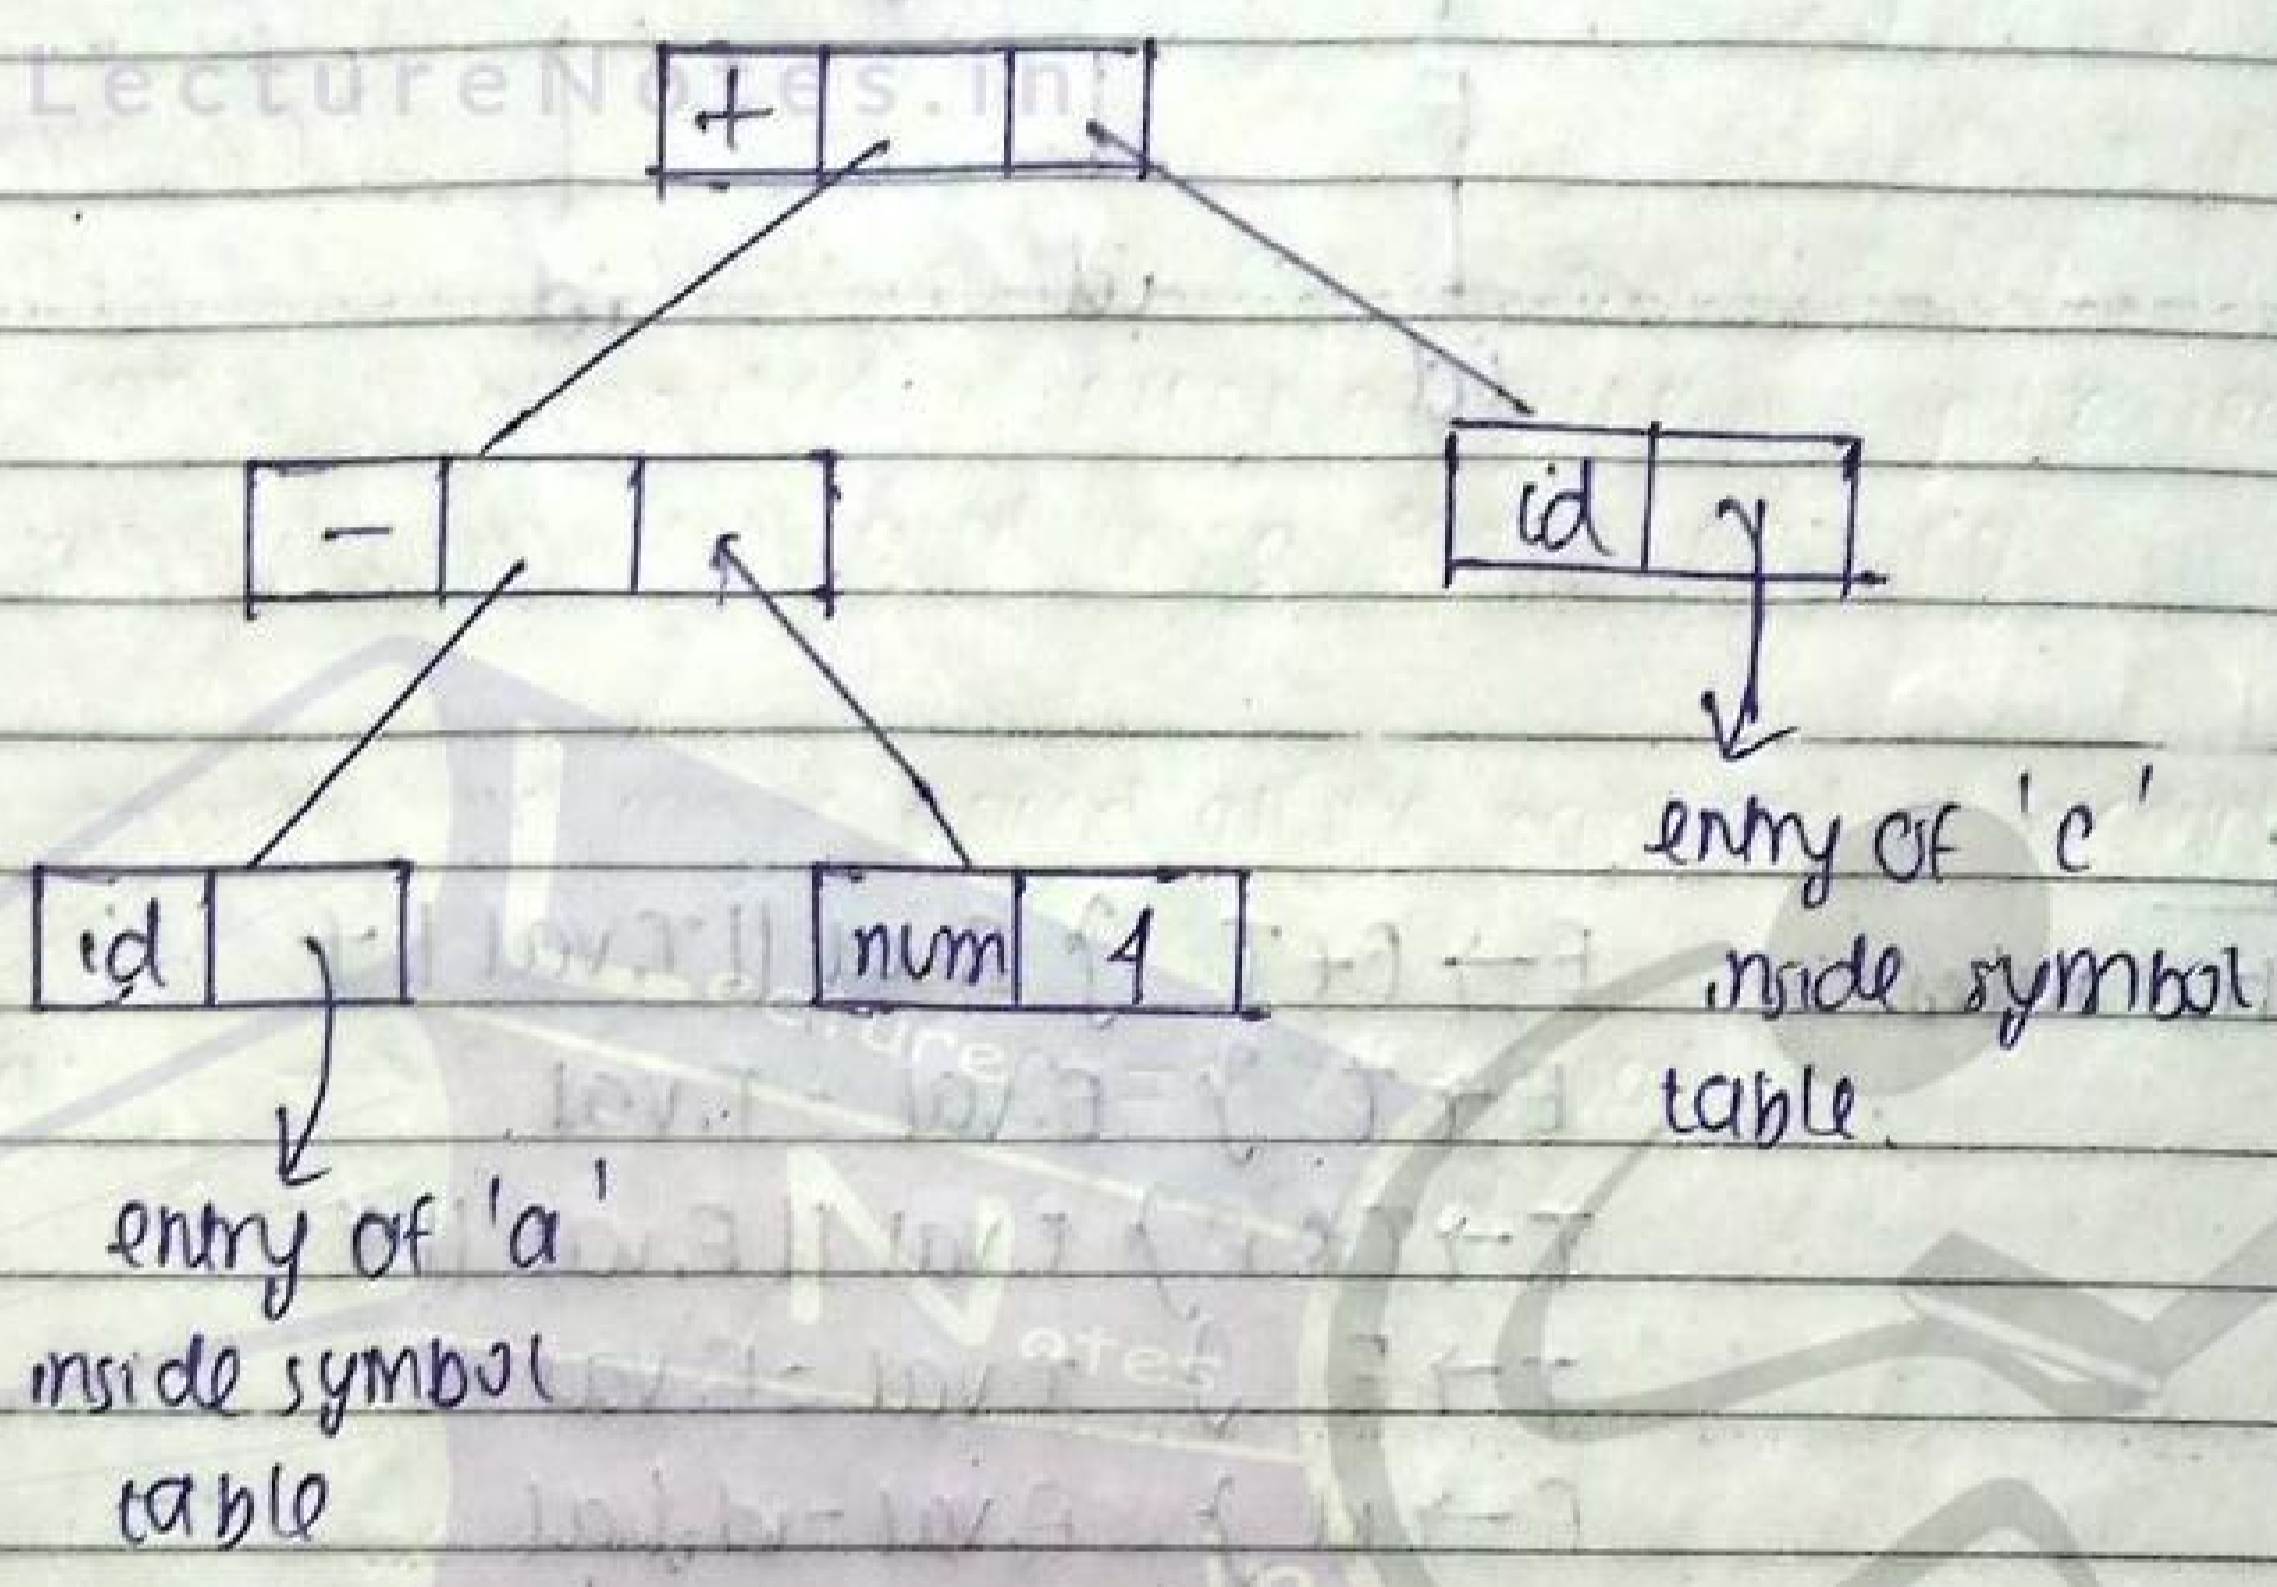 LectureNotes.in
+
-
id
id
num 4
entry of 'c'
inside symbol
table.
entry of 'a'
inside symbol
table